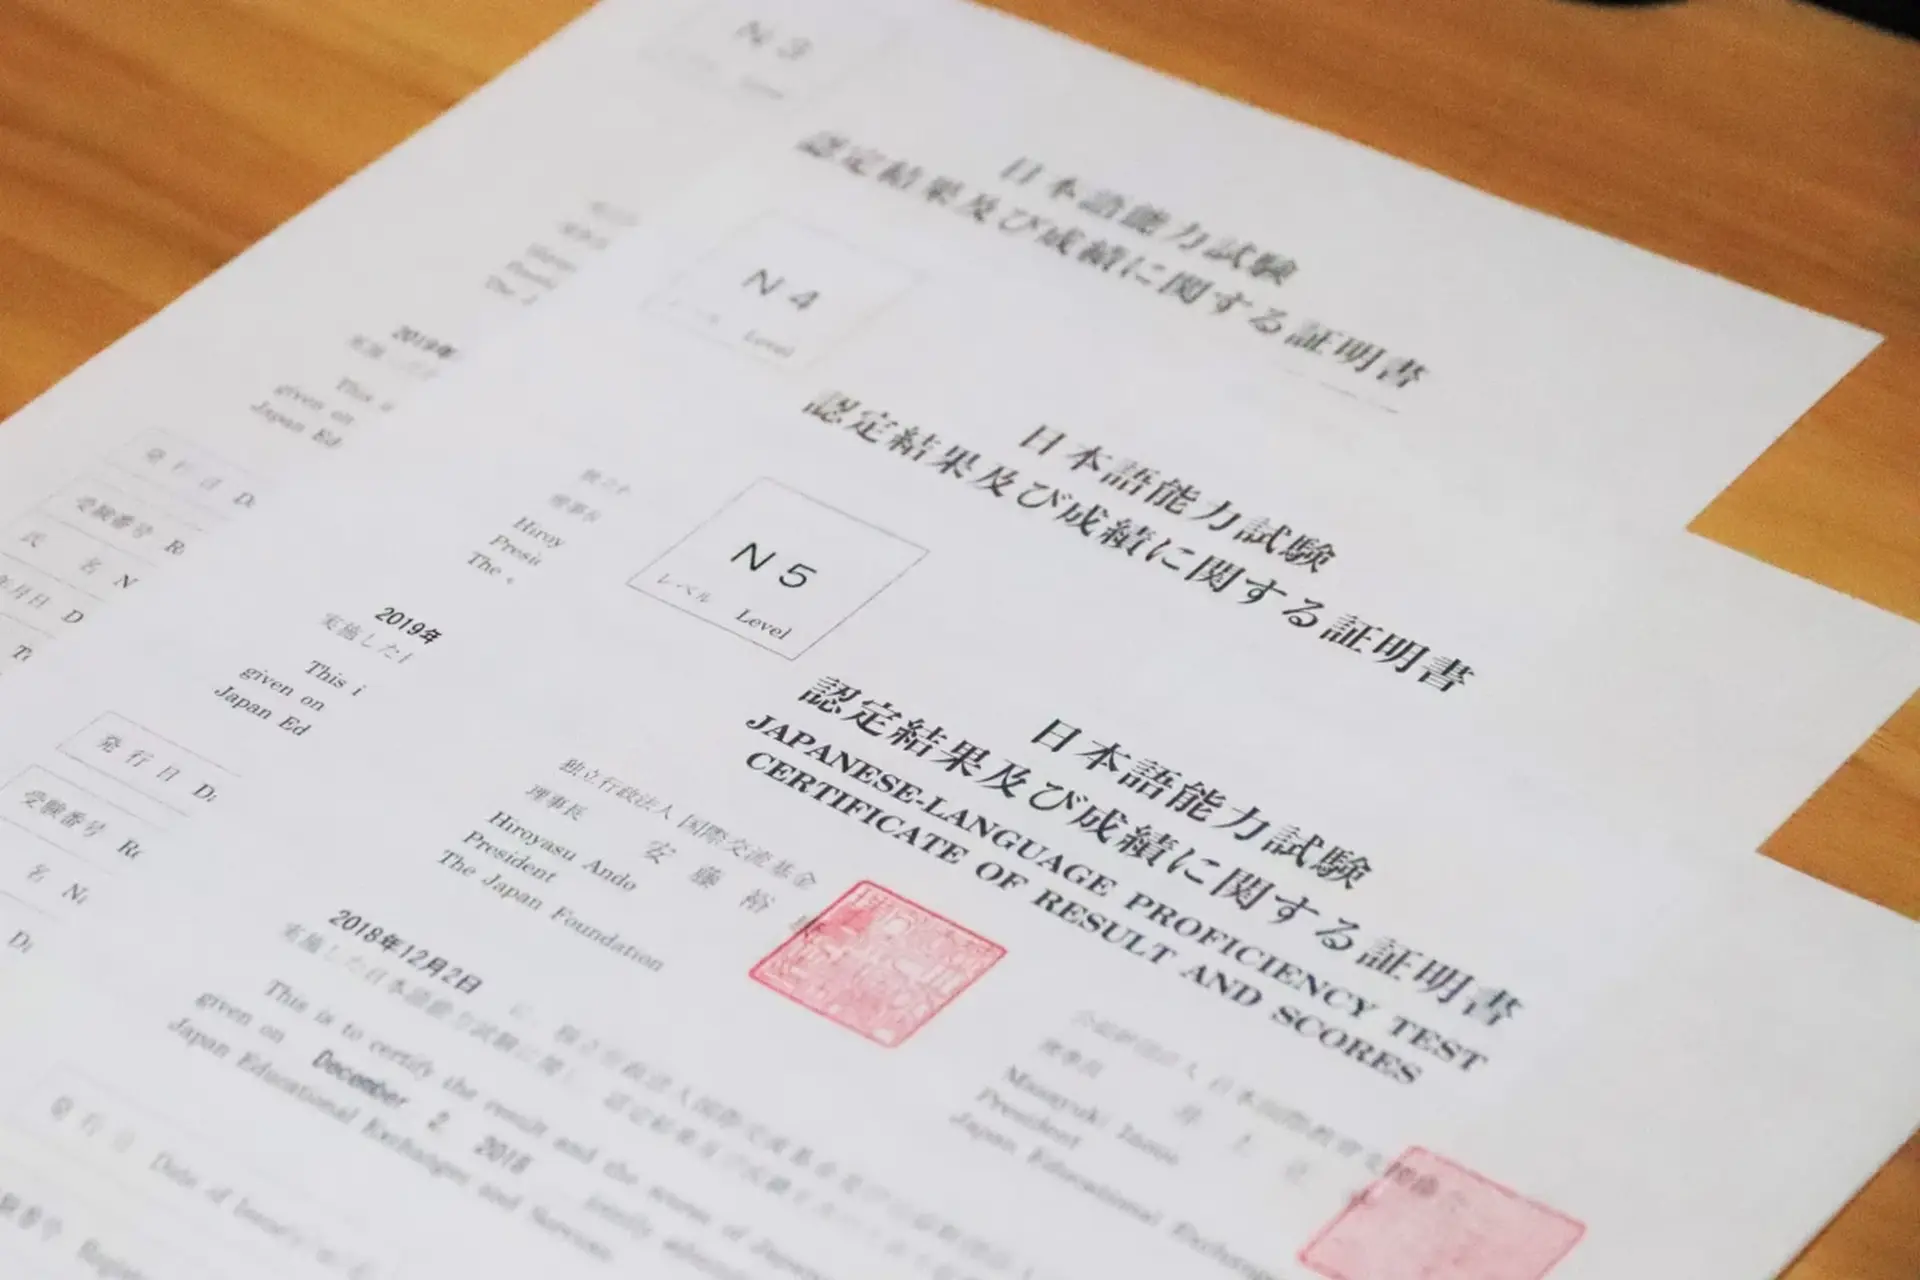 N 3
日本語能力試験
認定結果及び成績に関する証明書
N 4
Level
2019年
This i
given on
Japan Ed
日本語能力試験
認定結果及び成績に関する証明書
発 行 日 D
受験番号 R
氏 名 N
年月日 D
Hiroy
Presi
The
N 5
レベル Level
2019年
実施した
This i
given on
Japan Ed
日本語能力試験
認定結果及び成績に関する証明書
JAPANESE-LANGUAGE PROFICIENCY TEST
CERTIFICATE OF RESULT AND SCORES
発 行 日 D
受験番号 R
名 N
D
独立行政法人 国際交流基金
理事長 安 藤 裕
Hiroyasu Ando
President
The Japan Foundation
理事長 井 上
Masayuki Inoue
President
Japan Educational Exchanges
2018年12月2日 に、独立行政法人国際交流基金
実施した日本語能力試験に関し、認定結果及び成績
This is to certify the result and the scores of Japanese
given on December 2, 2018 jointly
Japan Educational Exchanges and Services.
発 行 日 Date of Issue